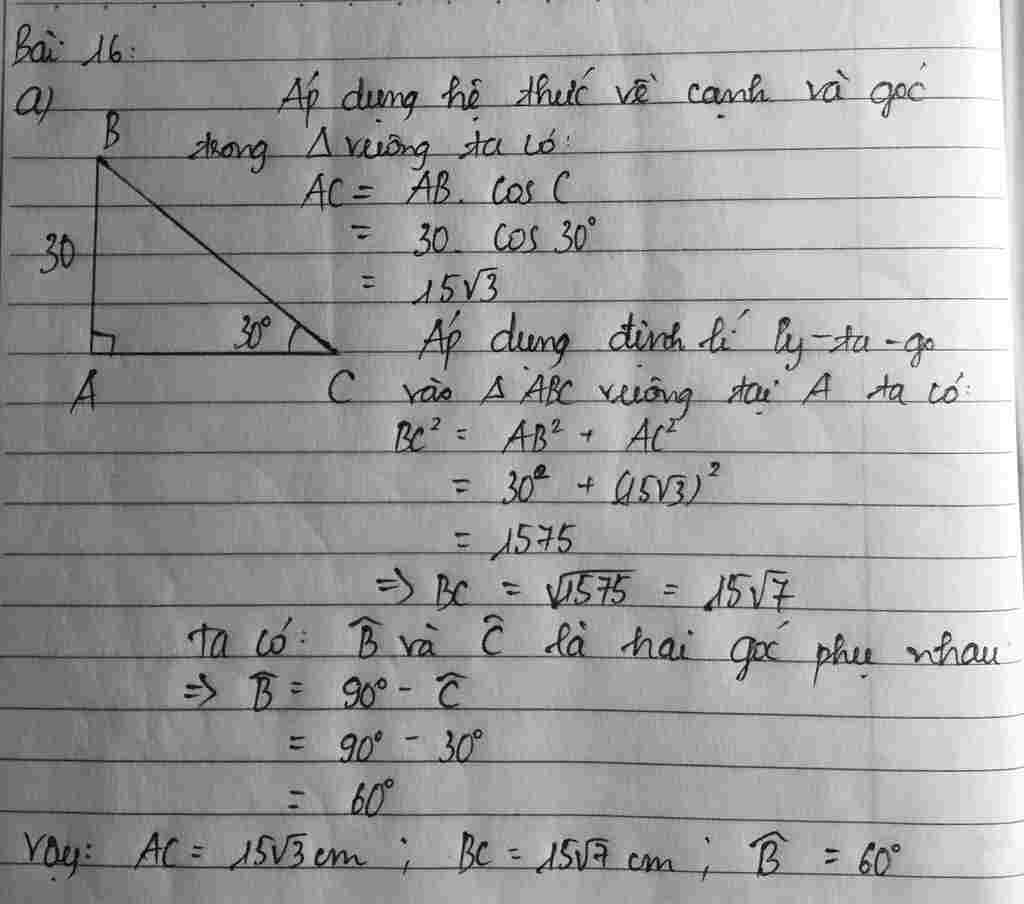 Bài 16:
a) Áp dụng hệ thức về cạnh và góc
B trong Δ vuông ta có:
AC = AB. cos C
30 = 30. cos 30°
= 15√3
30° Áp dụng định lí Py-ta-go
A C vào Δ ABC vuông tại A ta có:
BC² = AB² + AC²
= 30² + (15√3)²
= 1575
=> BC = √1575 = 15√7
ta có: B̂ và Ĉ là hai góc phụ nhau
=> B̂ = 90° - Ĉ
= 90° - 30°
= 60°
Vậy: AC = 15√3 cm ; BC = 15√7 cm ; B̂ = 60°